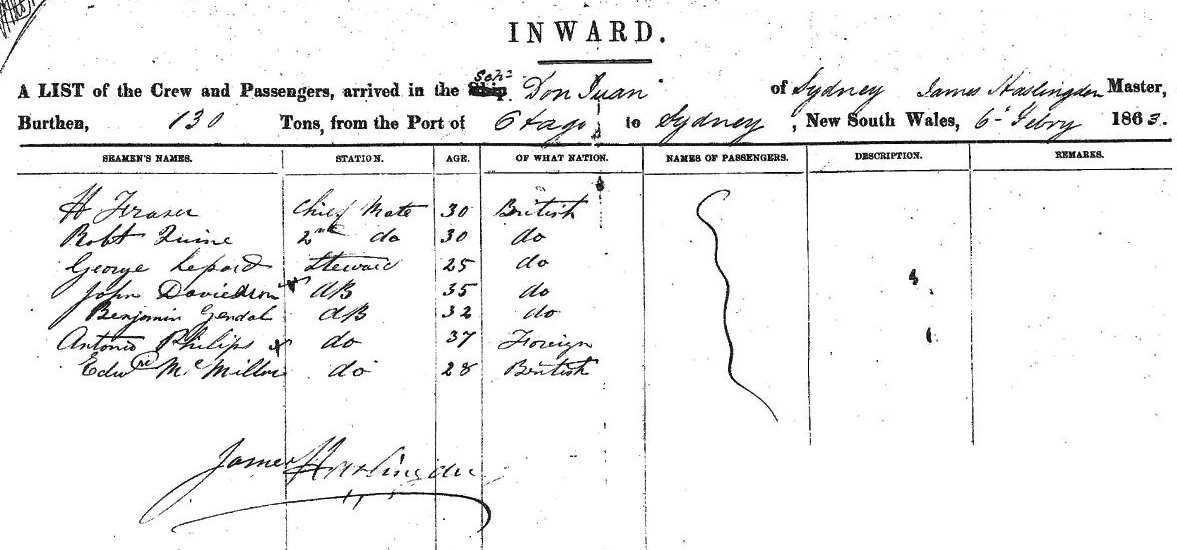 INWARD.
A LIST of the Crew and Passengers, arrived in the Ship Schr Don Juan of Sydney James Haslingden Master,
Burthen, 130 Tons, from the Port of Otago to Sydney, New South Wales, 6 Febry 1863.
SEAMEN'S NAMES. STATION. AGE. OF WHAT NATION. NAMES OF PASSENGERS. DESCRIPTION. REMARKS.
H Fraser Chief Mate 30 British
Robt Quine 2nd do 30 do
George Lepard Steward 25 do
John Davidson x AB 35 do
Benjamin Gendal AB 32 do
Antonio Philips x do 37 Foreign
Edwd McMillan do 28 British
James Haslingden